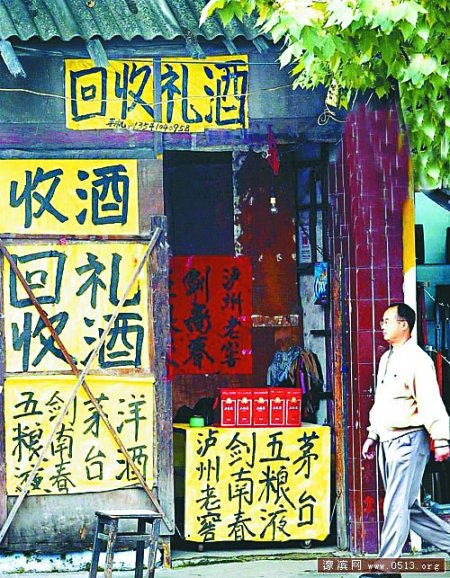 回收礼酒
手机:13541040958
收酒
回收
礼酒
五粮液
剑南春
茅台
洋酒
泸州老窖
剑南春
茅台
五粮液
剑南春
泸州老窖
濠滨网 www.0513.org